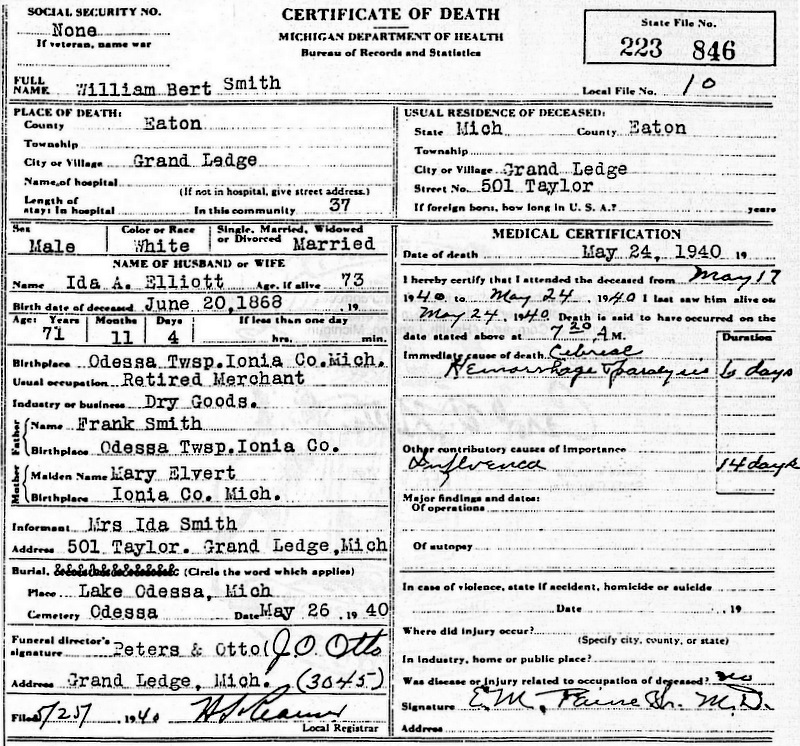 SOCIAL SECURITY NO.
None
If veteran, name war
CERTIFICATE OF DEATH
MICHIGAN DEPARTMENT OF HEALTH
Bureau of Records and Statistics
State File No.
223 846
FULL NAME William Bert Smith
Local File No. 10
PLACE OF DEATH:
County Eaton
Township
City or Village Grand Ledge
Name of hospital
(If not in hospital, give street address.)
Length of stay: In hospital In this community 37
USUAL RESIDENCE OF DECEASED:
State Mich County Eaton
Township
City or Village Grand Ledge
Street No. 501 Taylor
If foreign born, how long in U. S. A.? years
Sex Male
Color or Race White
Single, Married, Widowed or Divorced Married
NAME OF HUSBAND or WIFE
Name Ida A. Elliott Age, if alive 73
Birth date of deceased June 20,1868 19
Age: Years 71 Months 11 Days 4 If less than one day hrs. min.
Birthplace Odessa Twsp.Ionia Co.Mich.
Usual occupation Retired Merchant
Industry or business Dry Goods.
Father Name Frank Smith
Birthplace Odessa Twsp.Ionia Co.
Mother Maiden Name Mary Elvert
Birthplace Ionia Co. Mich.
Informant Mrs Ida Smith
Address 501 Taylor. Grand Ledge,Mich
Burial, (Circle the word which applies)
Place Lake Odessa, Mich
Cemetery Odessa Date May 26 1940
Funeral director's signature Peters & Otto (J.O. Otto
Address Grand Ledge, Mich. (3045)
Filed 5/25/ 1940
Local Registrar
MEDICAL CERTIFICATION
Date of death May 24, 1940 19
I hereby certify that I attended the deceased from May 17
1940 to May 24, 1940 I last saw him alive on
May 24, 1940 Death is said to have occurred on the
date stated above at 7 20 A M.
Duration
Immediate cause of death Cebrial
Hemorrhage & paralysis 6 days
Other contributory causes of importance
Influenza 14 days
Major findings and dates:
Of operations
Of autopsy
In case of violence, state if accident, homicide or suicide
Date , 19
Where did injury occur?
(Specify city, county, or state)
In industry, home or public place?
Was disease or injury related to occupation of deceased? no
Signature E.M. Paine Sr. M.D.
Address